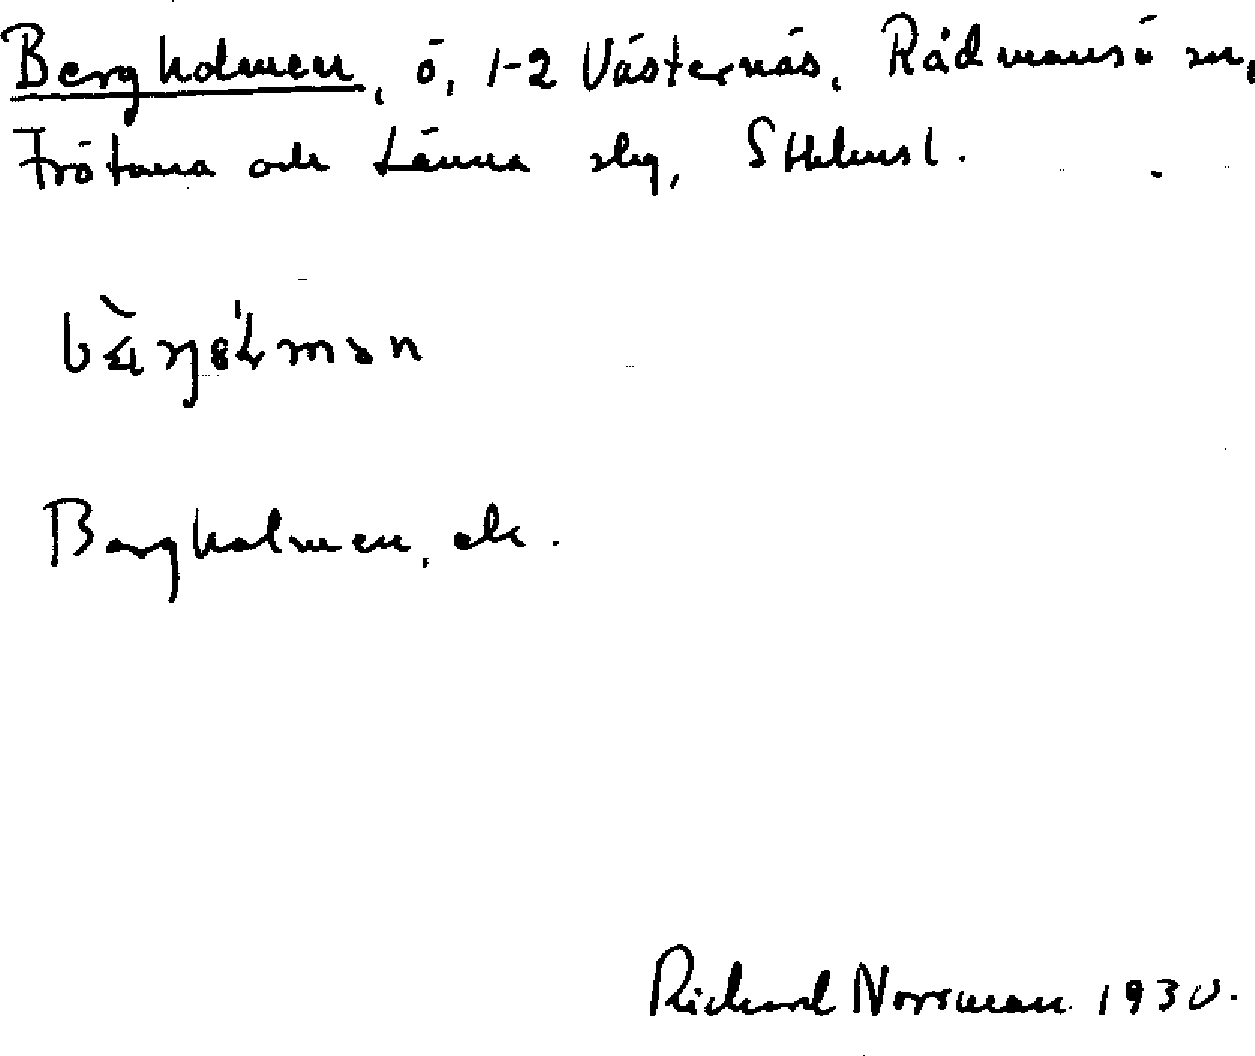 Bergholmen, ö, 1-2 Västernäs, Rådmansö sn,
Frötuna och Länna slg, Sthlmsl.
Bergholmen, ek.
Richard Norrman 1930.